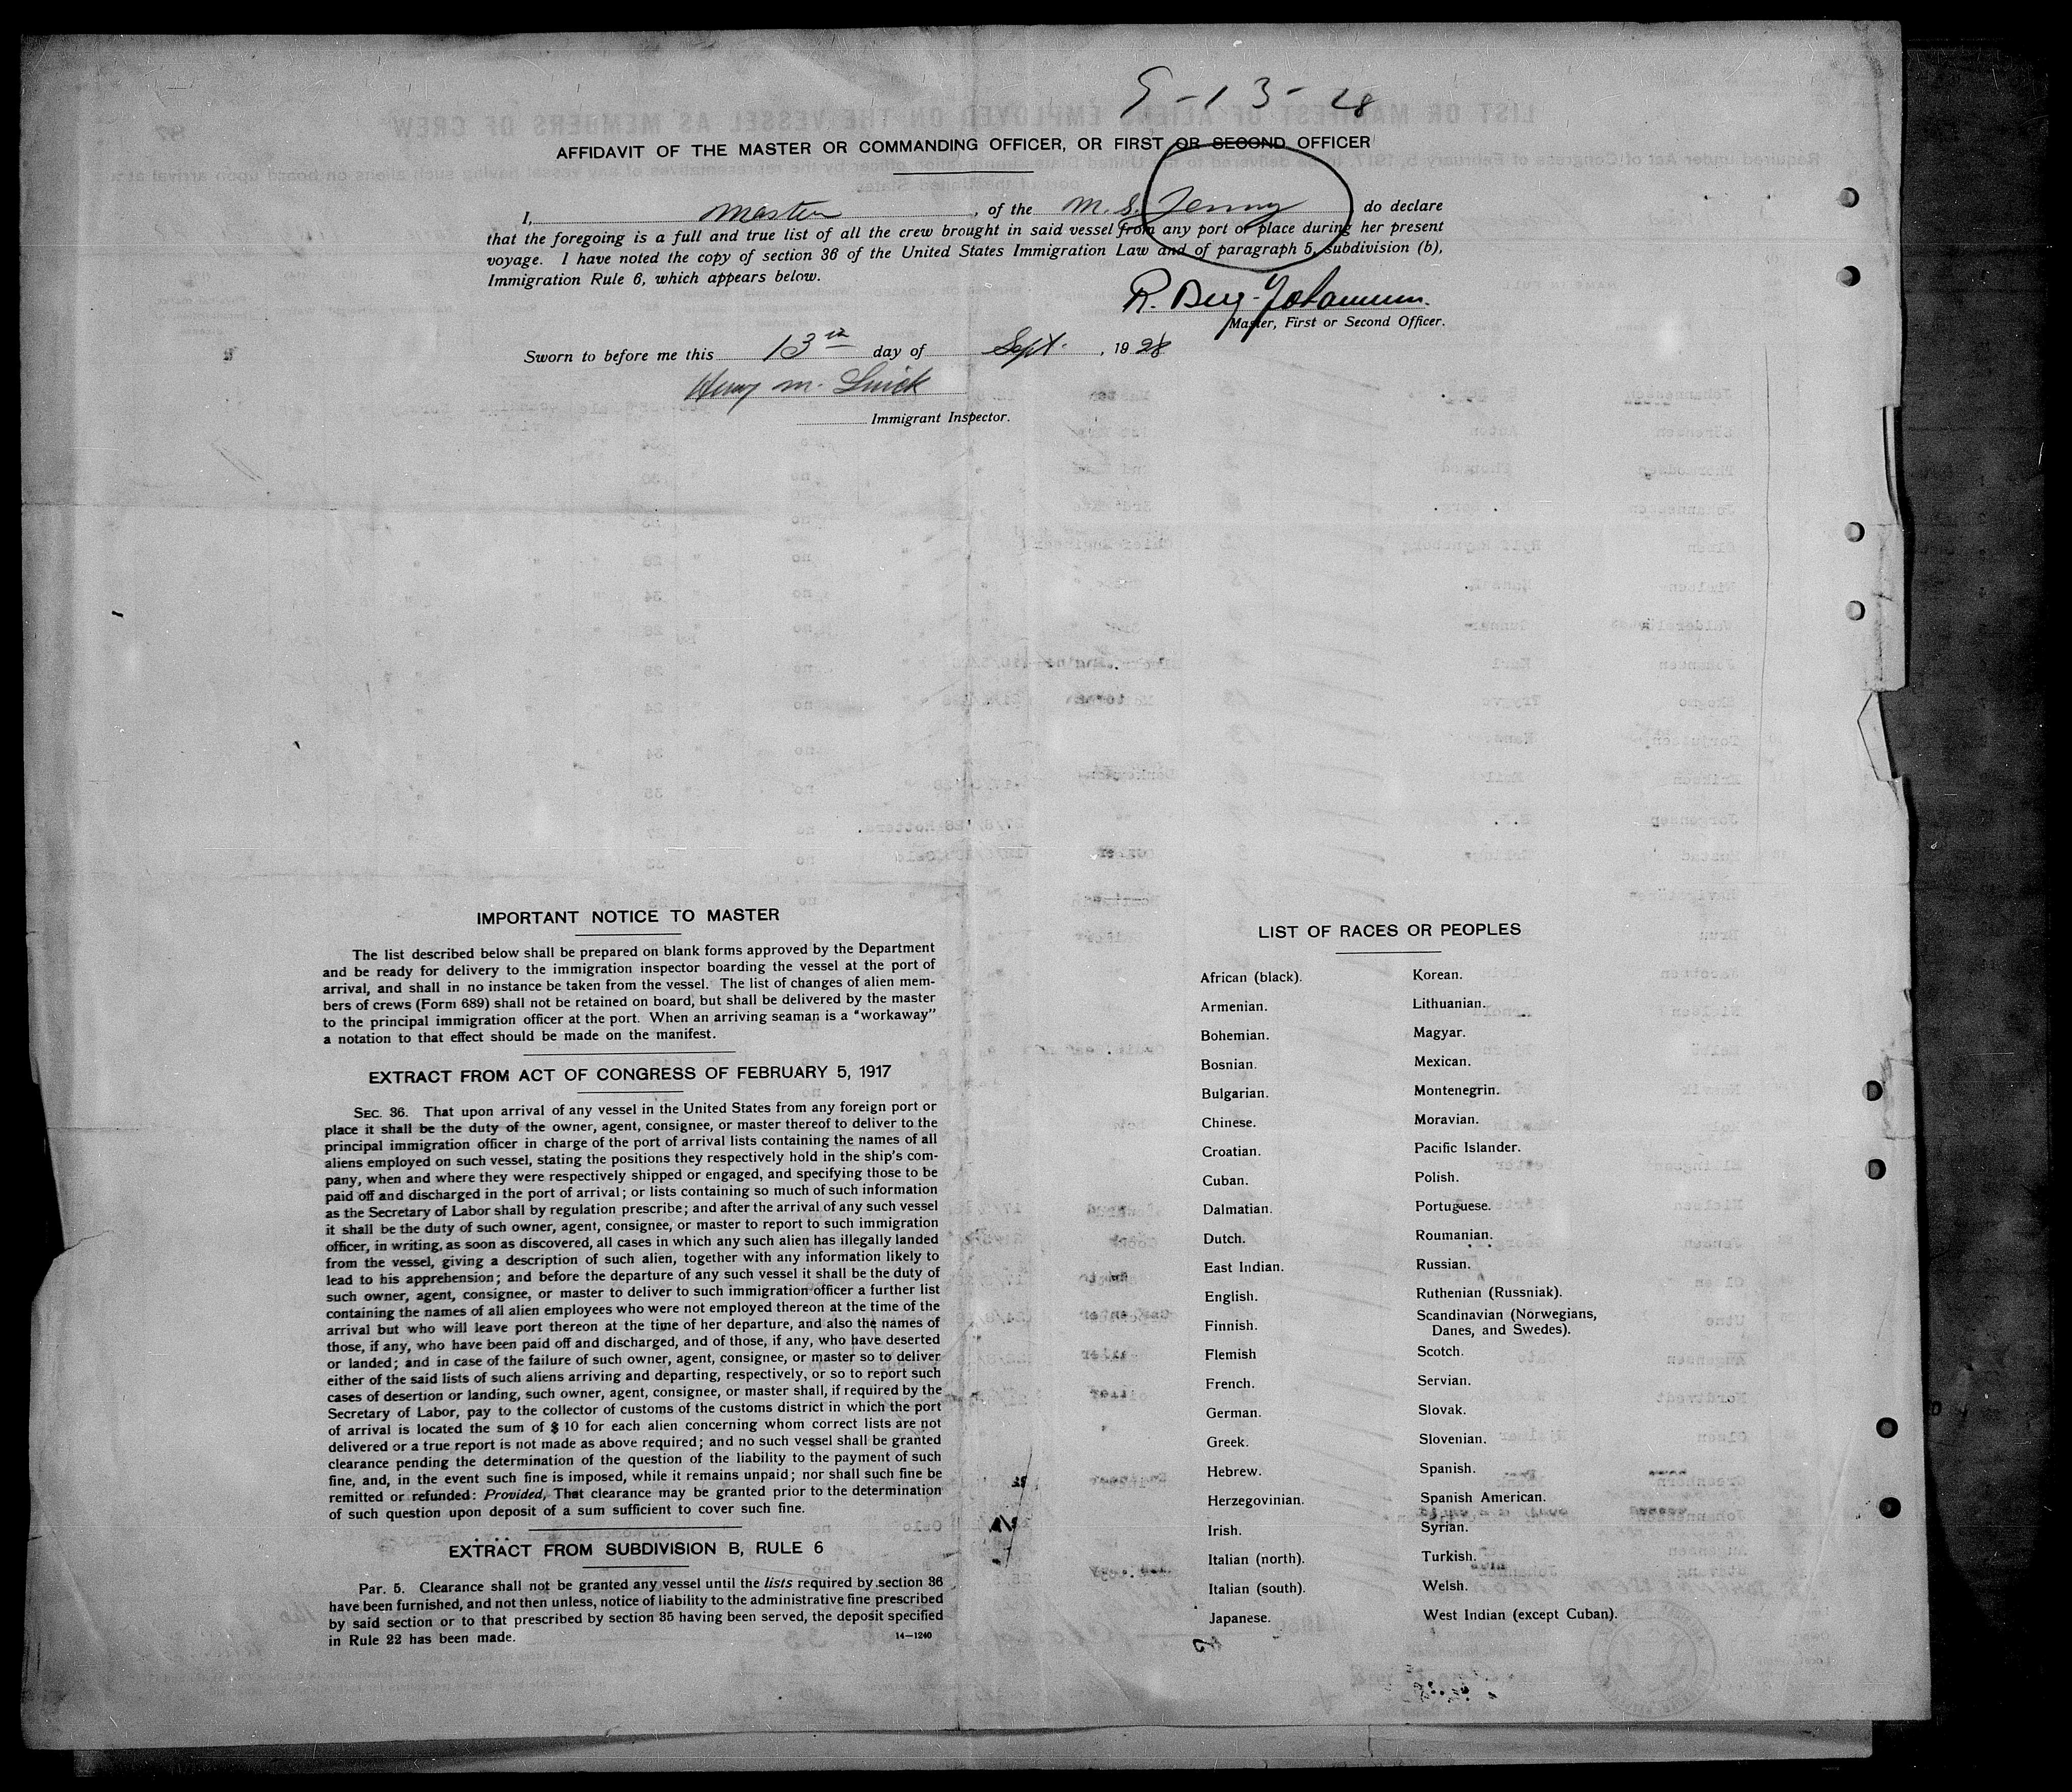 9-13-28
AFFIDAVIT OF THE MASTER OR COMMANDING OFFICER, OR FIRST OR SECOND OFFICER
I, Master, of the M. S. Jenny do declare
that the foregoing is a full and true list of all the crew brought in said vessel from any port or place during her present
voyage. I have noted the copy of section 36 of the United States Immigration Law and of paragraph 5, subdivision (b),
Immigration Rule 6, which appears below.
R. Berg-Johannesen.
Master, First or Second Officer.
Sworn to before me this 13th day of Sept., 1928
Henry M.
Immigrant Inspector.
IMPORTANT NOTICE TO MASTER
The list described below shall be prepared on blank forms approved by the Department
and be ready for delivery to the immigration inspector boarding the vessel at the port of
arrival, and shall in no instance be taken from the vessel. The list of changes of alien mem-
bers of crews (Form 689) shall not be retained on board, but shall be delivered by the master
to the principal immigration officer at the port. When an arriving seaman is a "workaway"
a notation to that effect should be made on the manifest.
EXTRACT FROM ACT OF CONGRESS OF FEBRUARY 5, 1917
SEC. 36. That upon arrival of any vessel in the United States from any foreign port or
place it shall be the duty of the owner, agent, consignee, or master thereof to deliver to the
principal immigration officer in charge of the port of arrival lists containing the names of all
aliens employed on such vessel, stating the positions they respectively hold in the ship's com-
pany, when and where they were respectively shipped or engaged, and specifying those to be
paid off and discharged in the port of arrival; or lists containing so much of such information
as the Secretary of Labor shall by regulation prescribe; and after the arrival of any such vessel
it shall be the duty of such owner, agent, consignee, or master to report to such immigration
officer, in writing, as soon as discovered, all cases in which any such alien has illegally landed
from the vessel, giving a description of such alien, together with any information likely to
lead to his apprehension; and before the departure of any such vessel it shall be the duty of
such owner, agent, consignee, or master to deliver to such immigration officer a further list
containing the names of all alien employees who were not employed thereon at the time of the
arrival but who will leave port thereon at the time of her departure, and also the names of
those, if any, who have been paid off and discharged, and of those, if any, who have deserted
or landed; and in case of the failure of such owner, agent, consignee, or master so to deliver
either of the said lists of such aliens arriving and departing, respectively, or so to report such
cases of desertion or landing, such owner, agent, consignee, or master shall, if required by the
Secretary of Labor, pay to the collector of customs of the customs district in which the port
of arrival is located the sum of $ 10 for each alien concerning whom correct lists are not
delivered or a true report is not made as above required; and no such vessel shall be granted
clearance pending the determination of the question of the liability to the payment of such
fine, and, in the event such fine is imposed, while it remains unpaid; nor shall such fine be
remitted or refunded: Provided, That clearance may be granted prior to the determination
of such question upon deposit of a sum sufficient to cover such fine.
EXTRACT FROM SUBDIVISION B, RULE 6
Par. 5. Clearance shall not be granted any vessel until the lists required by section 36
have been furnished, and not then unless, notice of liability to the administrative fine prescribed
by said section or to that prescribed by section 35 having been served, the deposit specified
in Rule 22 has been made.
14—1240
LIST OF RACES OR PEOPLES
African (black).
Armenian.
Bohemian.
Bosnian.
Bulgarian.
Chinese.
Croatian.
Cuban.
Dalmatian.
Dutch.
East Indian.
English.
Finnish.
Flemish
French.
German.
Greek.
Hebrew.
Herzegovinian.
Irish.
Italian (north).
Italian (south).
Japanese.
Korean.
Lithuanian.
Magyar.
Mexican.
Montenegrin.
Moravian.
Pacific Islander.
Polish.
Portuguese.
Roumanian.
Russian.
Ruthenian (Russniak).
Scandinavian (Norwegians,
Danes, and Swedes).
Scotch.
Servian.
Slovak.
Slovenian.
Spanish.
Spanish American.
Syrian.
Turkish.
Welsh.
West Indian (except Cuban).